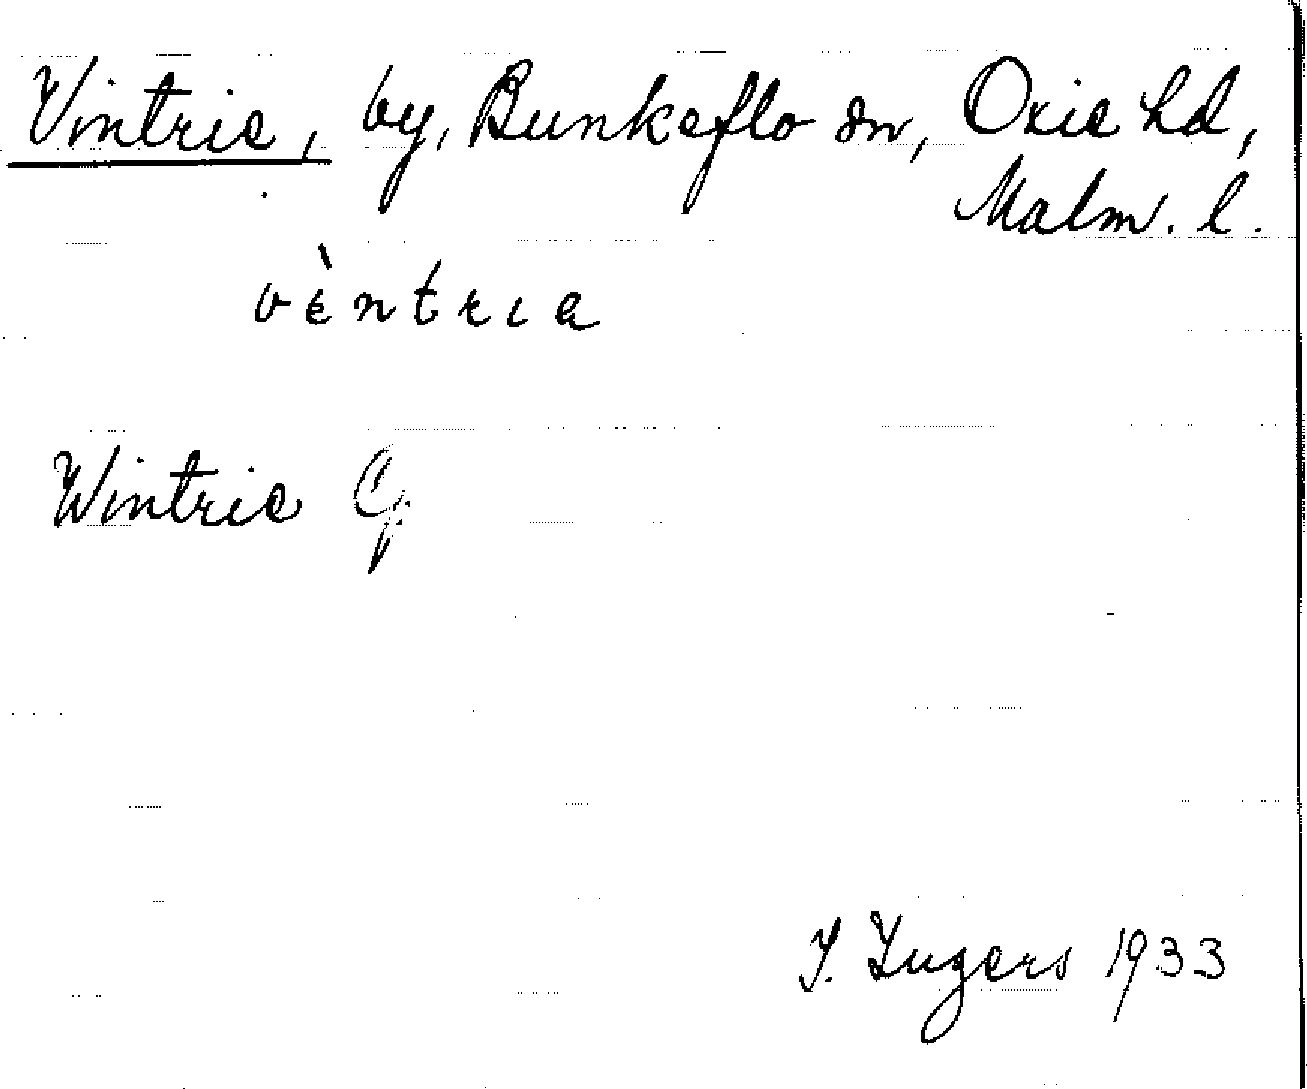 Vintrie, by, Bunkeflo sn, Oxie hd,
Malm. l.
vèntrıa
Wintrie
I. Ingers 1933